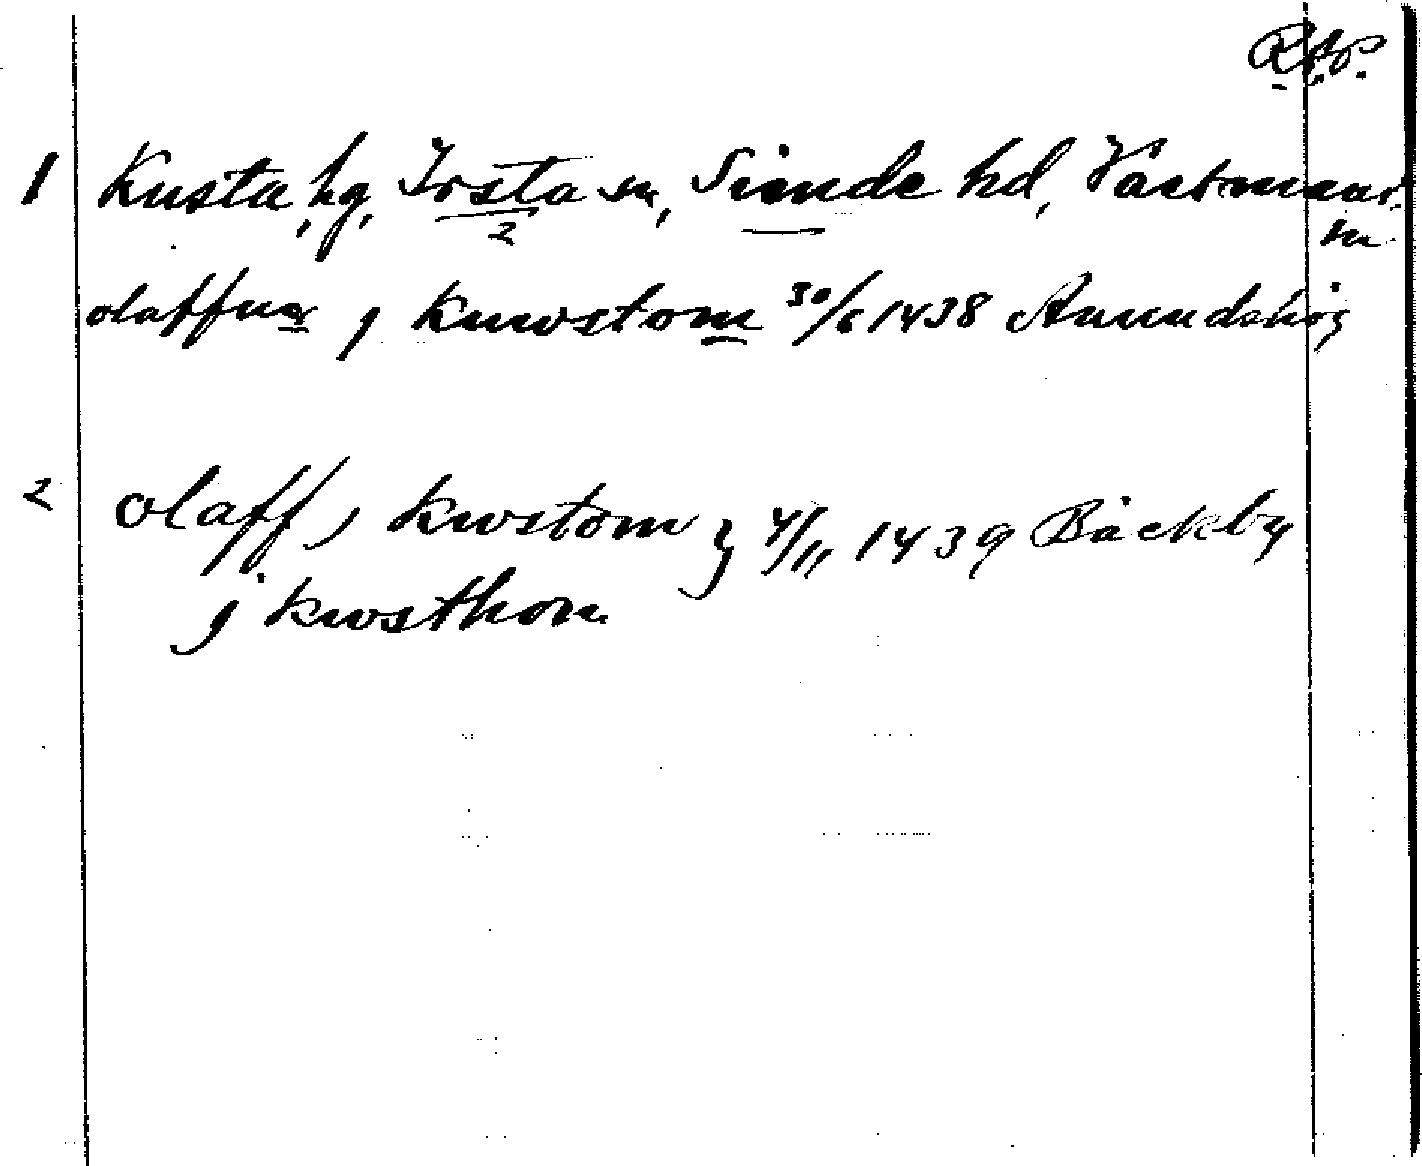 R.A.P.
1 Kusta, hg, Irsta sn, Siende hd, Västman-
2 ln
olaffue j knwstom 30/6 1438 Anundshög
2 olaff j kwstom 4/11 1439 Bäckby
j kwsthom